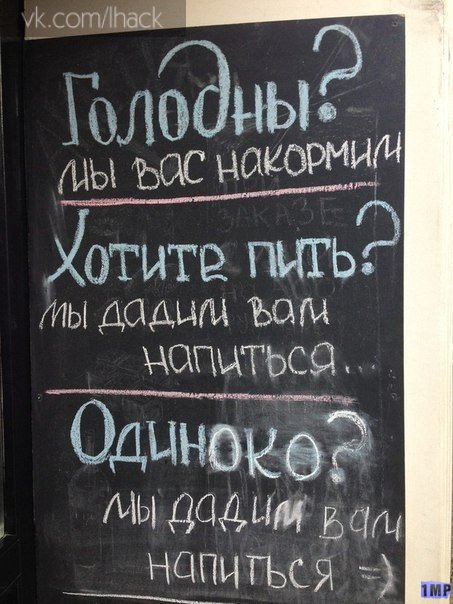 vk.com/lhack
Голодны?
мы вас накормим
ЗАКАЗЕ
Хотите пить?
мы дадим вам
напиться...
Одиноко?
мы дадим вам
напиться :)
1MP